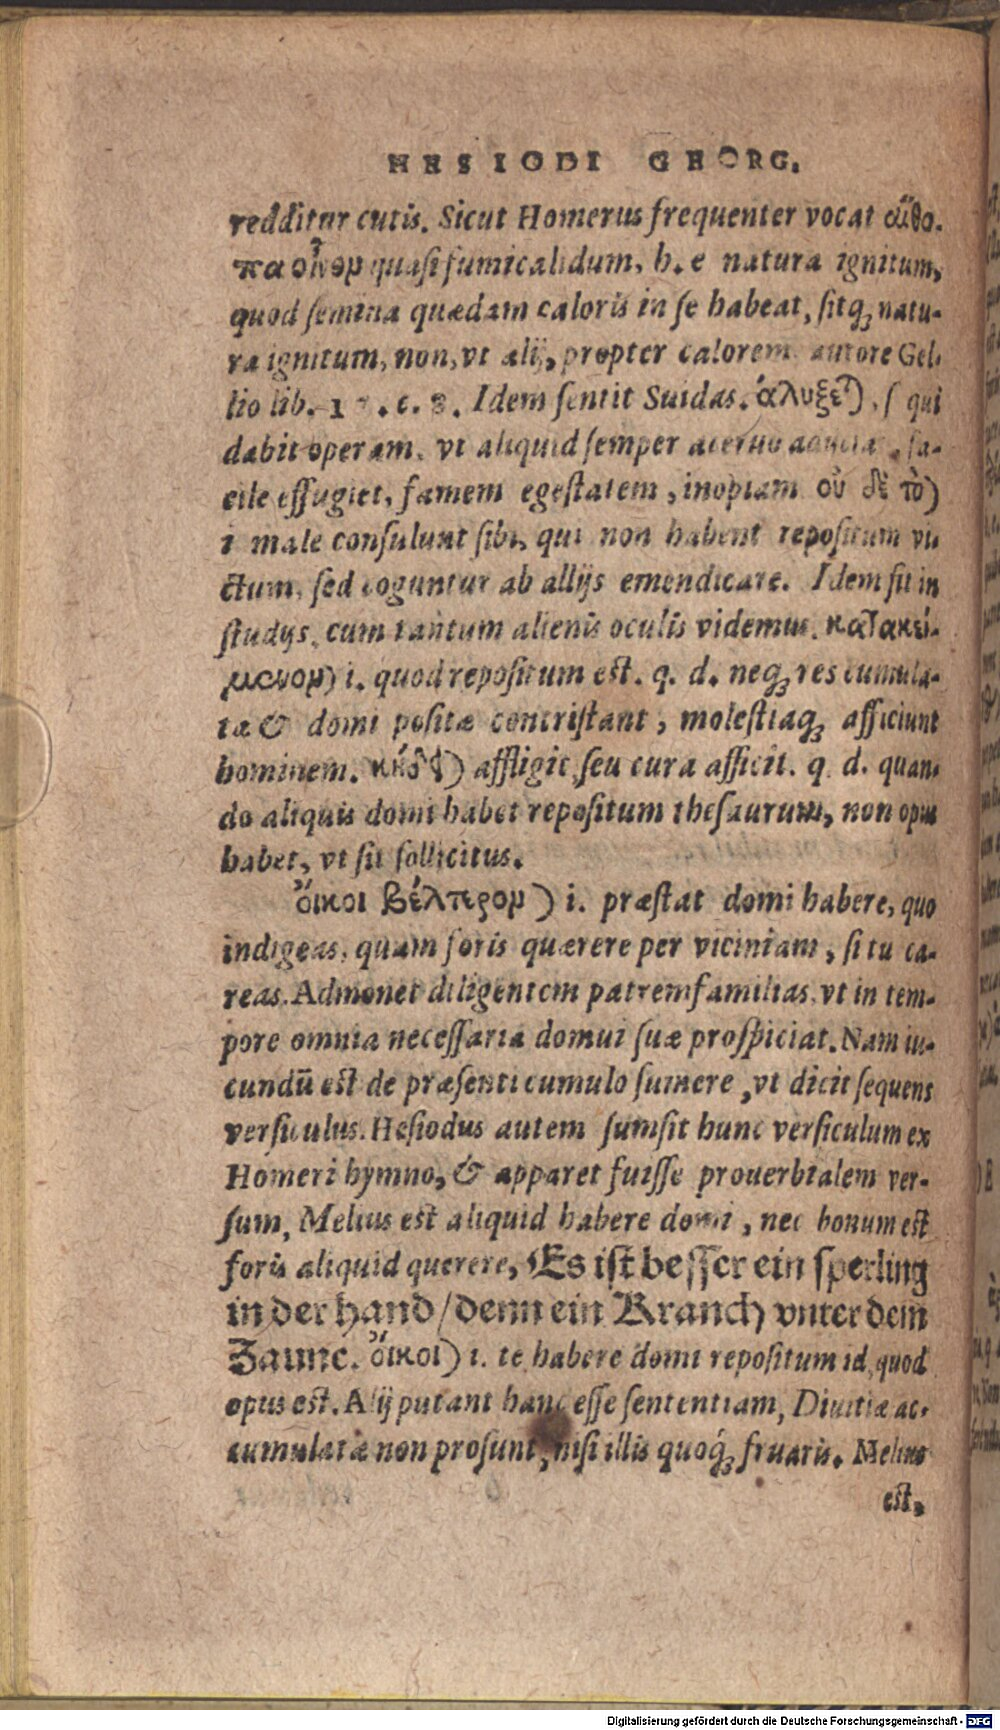 HESIODI GEORG.
redditur cutis. Sicut Homerus frequenter vocat αἴθο-
πα οἶνομ quasi fumicalidum, h. e natura ignitum,
quod semina quædam caloris in se habeat, sitq́; natu-
ra ignitum, non, vt alij, propter calorem autore Gel-
lio lib. 17. c. 8. Idem sentit Suidas. ἀλυξε͂) .s qui
dabit operam, vt aliquid semper aceruo
cile effugiet, famem egestatem, inopiam οὐ δὲ τὸ)
i male consulunt sibi, qui non habent repositum vi
ctum, sed coguntur ab allijs emendicare. Idem fit in
studijs, cum tantum alienis oculis videmus. κατακεί-
μενομ) i. quod repositum est. q. d. neq; res cumula-
tæ & domi positæ contristant, molestiaq; afficiunt
hominem. κήδει) affligit, seu cura afficit. q. d. quan-
do aliquis domi habet repositum thesaurum, non opus
habet, vt sit sollicitus.
οἴκοι βέλτερομ) i. præstat domi habere, quo
indigeas, quam foris quærere per viciniam, si tu ca-
reas. Admonet diligentem patremfamilias, vt in tem-
pore omnia necessaria domui suæ prospiciat. Nam iu-
cundū est de præsenti cumulo sumere, vt dicit sequens
versiculus. Hesiodus autem sumsit hunc versiculum ex
Homeri hymno, & apparet fuisse prouerbialem ver-
sum, Melius est aliquid habere domi, nec bonum est
foris aliquid querere, Es ist besser ein sperling
in der hand / denn ein Kranch vnter dem
Zaune. οἴκοι) i. te habere domi repositum id, quod
opus est. Alij putant hanc esse sententiam, Diuitiæ ac-
cumulatæ non prosunt, nisi illis quoq́; fruaris. Melius
est,
Digitalisierung gefördert durch die Deutsche Forschungsgemeinschaft - DFG